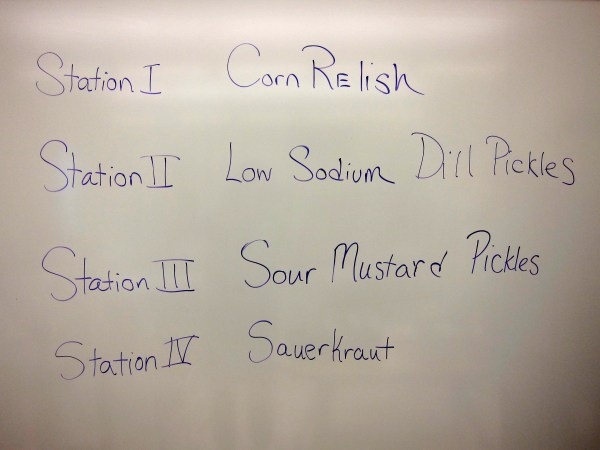 Station I Corn Relish
Station II Low Sodium Dill Pickles
Station III Sour Mustard Pickles
Station IV Sauerkraut